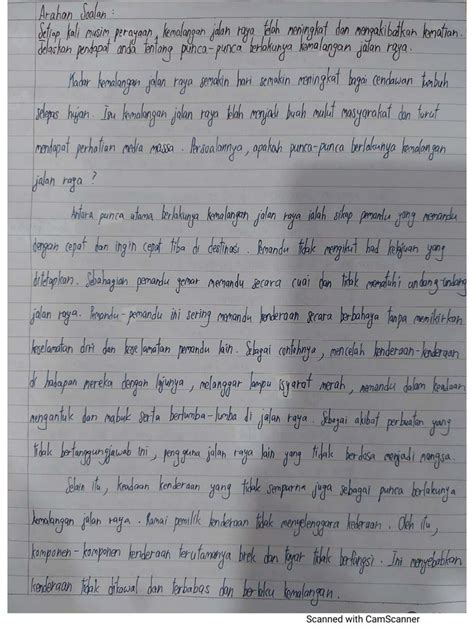 Arahan Soalan :
Setiap kali musim perayaan, kemalangan jalan raya telah meningkat dan mengakibatkan kematian.
Jelaskan pendapat anda tentang punca-punca berlakunya kemalangan jalan raya.
Kadar kemalangan jalan raya semakin hari semakin meningkat bagai cendawan tumbuh
selepas hujan. Isu kemalangan jalan raya telah menjadi buah mulut masyarakat dan turut
mendapat perhatian media massa. Persoalannya, apakah punca-punca berlakunya kemalangan
jalan raya ?
Antara punca utama berlakunya kemalangan jalan raya ialah sikap pemandu yang memandu
dengan cepat dan ingin cepat tiba di destinasi. Pemandu tidak mengikut had kelajuan yang
ditetapkan. Sebahagian pemandu gemar memandu secara cuai dan tidak mematuhi undang-undang
jalan raya. Pemandu-pemandu ini sering memandu kenderaan secara berbahaya tanpa memikirkan
keselamatan diri dan keselamatan pemandu lain. Sebagai contohnya, mencelah kenderaan-kenderaan
di hadapan mereka dengan lajunya, melanggar lampu isyarat merah, memandu dalam keadaan
mengantuk dan mabuk serta berlumba-lumba di jalan raya. Sebagai akibat perbuatan yang
tidak bertanggungjawab ini, pengguna jalan raya lain yang tidak berdosa menjadi mangsa.
Selain itu, keadaan kenderaan yang tidak sempurna juga sebagai punca berlakunya
kemalangan jalan raya. Ramai pemilik kenderaan tidak menyelenggara kederaan. Oleh itu,
komponen-komponen kenderaan terutamanya brek dan tayar tidak berfungsi. Ini menyebabkan
kenderaan tidak dikawal dan terbabas dan berlaku kemalangan.
Scanned with CamScanner